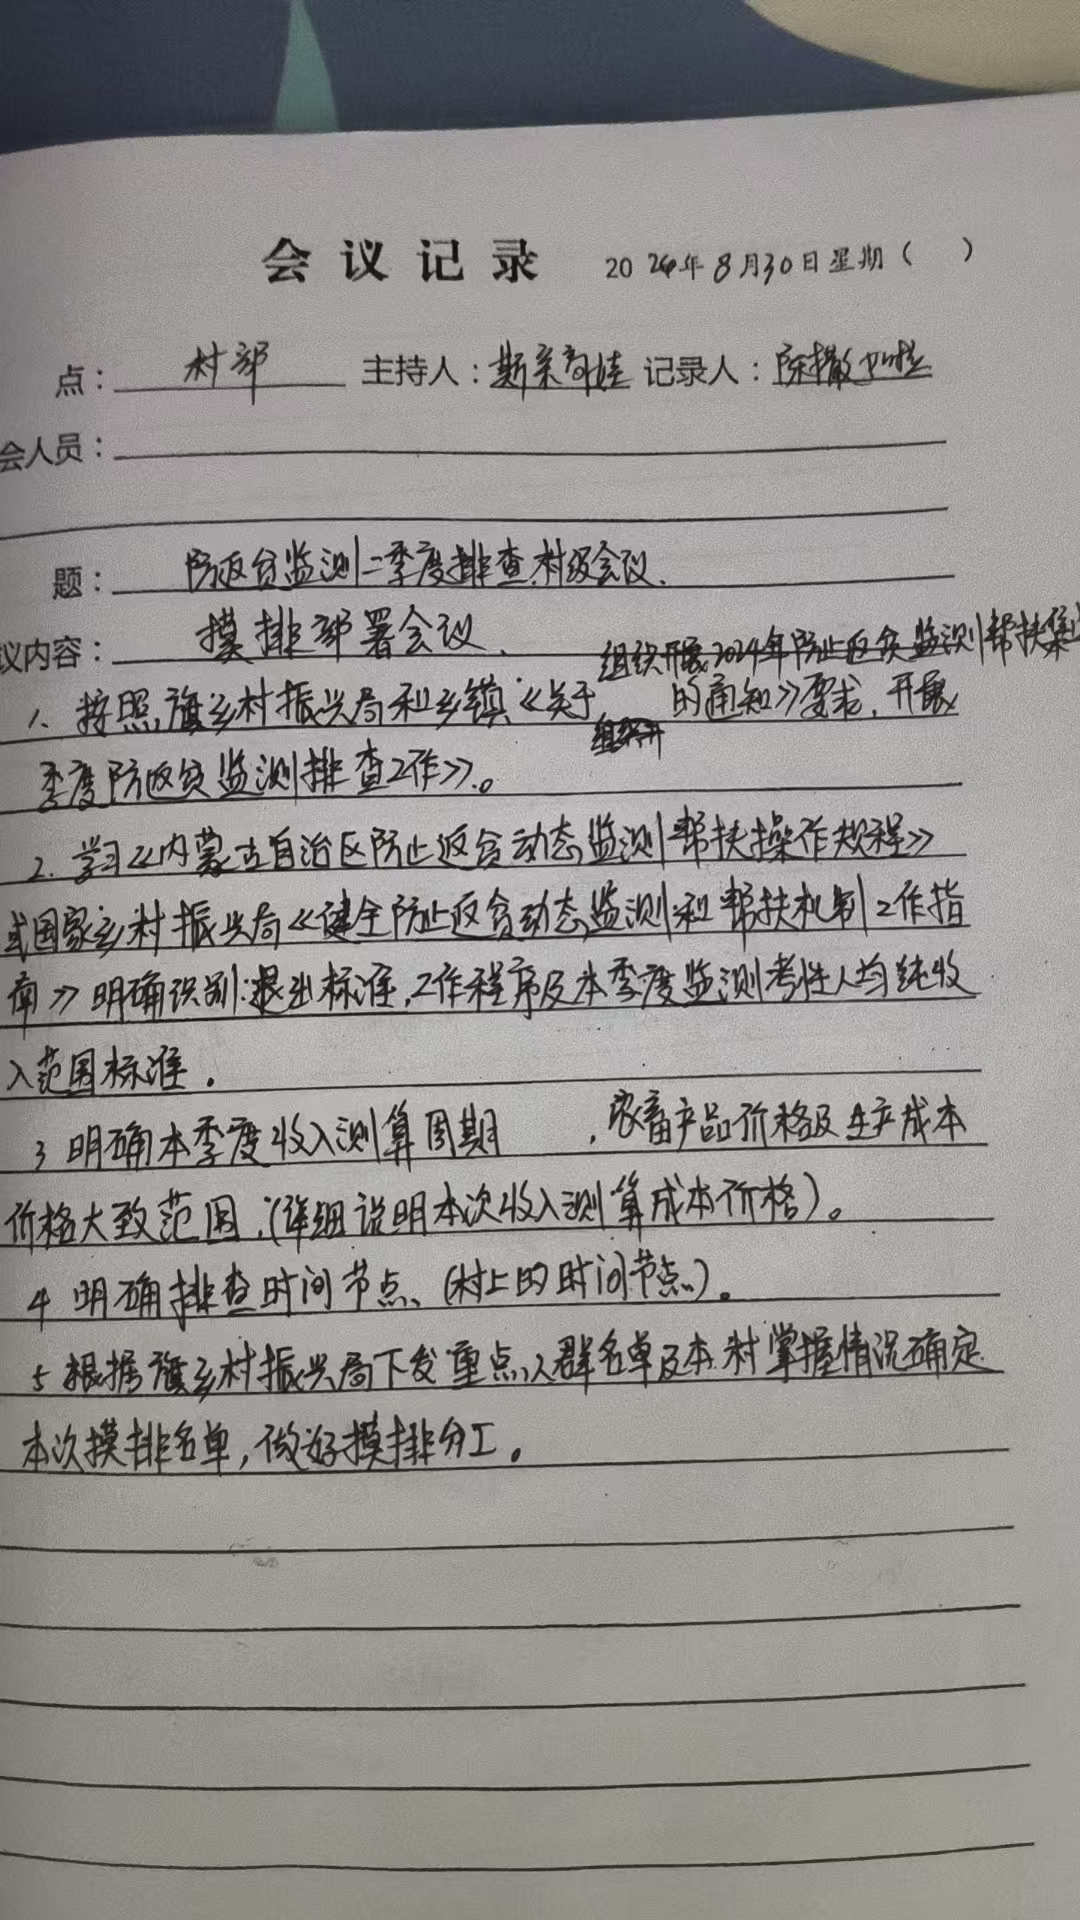 会议记录 2024年8月30日星期( )
点: 村部 主持人: 斯 记录人: 陈撒
会人员:
题: 防返贫监测二季度排查村级会议.
议内容: 摸排部署会议、
组织开展2024年防止返贫监测帮扶集
1、按照旗乡村振兴局和乡镇《关于 的通知》要求,开展
季度防返贫监测排查工作》。
2. 学习《内蒙古自治区防止返贫动态监测帮扶操作规程》
或国家乡村振兴局《健全防止返贫动态监测和帮扶机制工作指
南》明确识别.退出标准,工作程序及本季度监测考性人均纯收
入范围标准.
3 明确本季度收入测算周期 ,农畜产品价格及生产成本
价格大致范围.(详细说明本次收入测算成本价格)。
4 明确排查时间节点、(村上的时间节点)。
5 根据旗乡村振兴局下发重点人群名单及本村掌握情况确定
本次摸排名单,做好摸排分工。